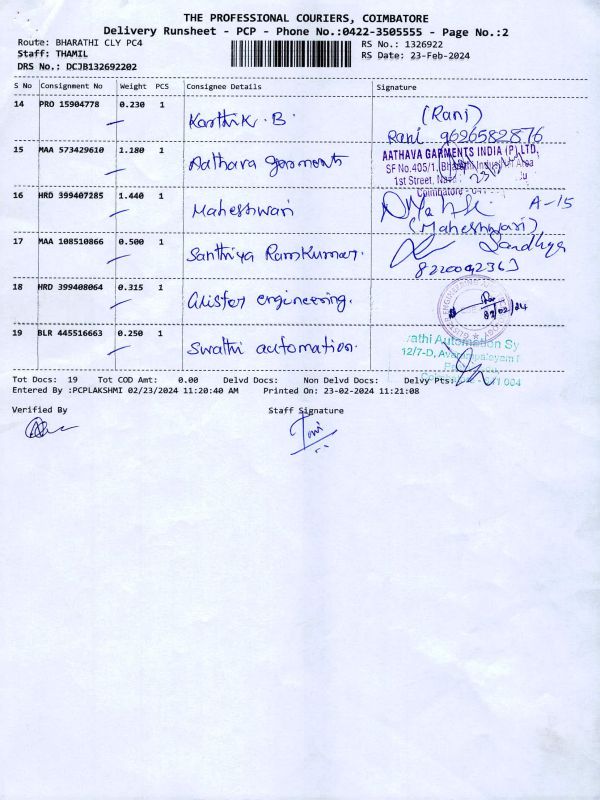 THE PROFESSIONAL COURIERS, COIMBATORE
Delivery Runsheet - PCP - Phone No.:0422-3505555 - Page No.:2
Route: BHARATHI CLY PC4
RS No.: 1326922
Staff: THAMIL
RS Date: 23-Feb-2024
DRS No.: DCJB132692202
S No Consignment No Weight PCS Consignee Details Signature
14 PRO 15904778 0.230 1 Karthik. B. (Rani)
Rani 9626582876
15 MAA 573429610 1.180 1 Aathava garments
AATHAVA GARMENTS INDIA (P) LTD,
SF No.405/1, Bharathi Industrial Area
1st Street,
Coimbatore
16 HRD 399407285 1.440 1 Maheshwari A-15
(Maheshwari)
17 MAA 108510866 0.500 1 Santhiya Ramkumar. Sandhya
8220092363
18 HRD 399408064 0.315 1 Alister engineering.
19 BLR 445516663 0.250 1 Swathi automation.
athi Automation Sy
12/7-D,
Tot Docs: 19 Tot COD Amt: 0.00 Delvd Docs: Non Delvd Docs: Delvy Pts:
Entered By :PCPLAKSHMI 02/23/2024 11:20:40 AM Printed On: 23-02-2024 11:21:08
Verified By Staff Signature